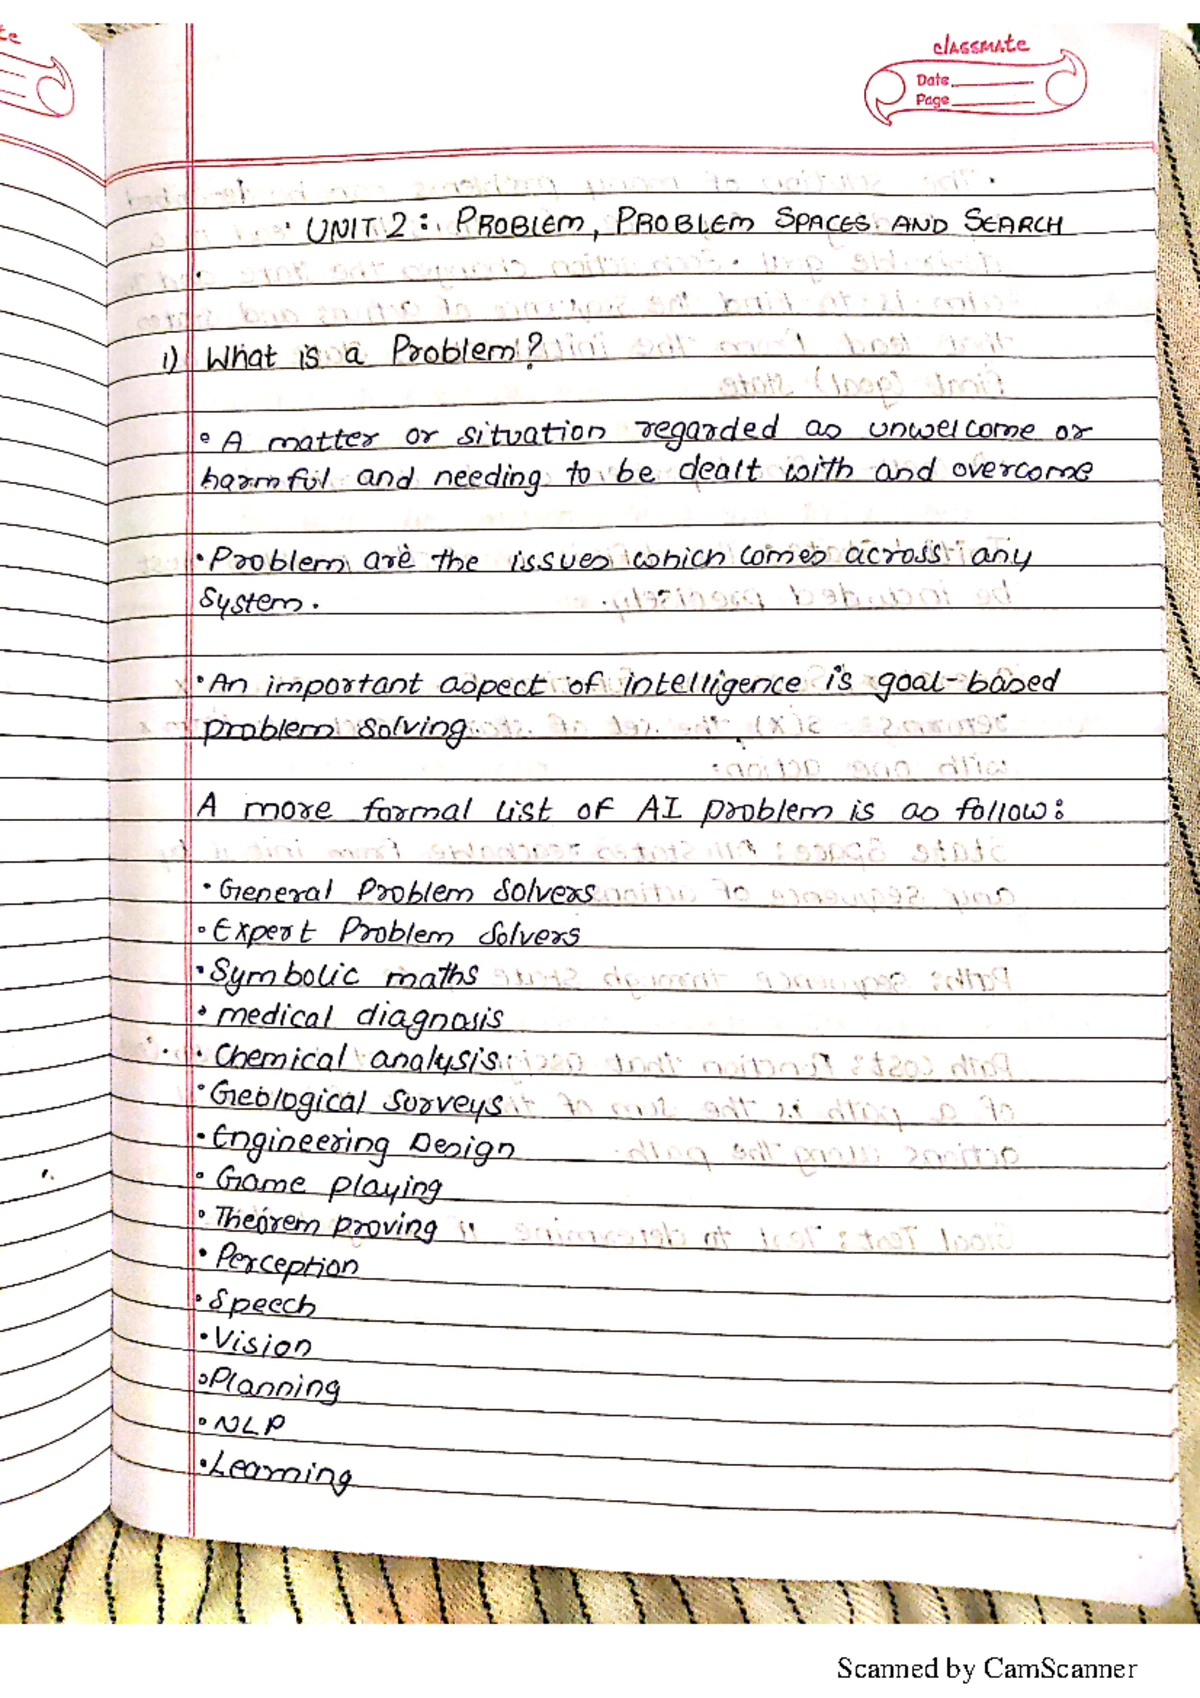 te
classmate
Date
Page
UNIT 2 : PROBLEM, PROBLEM SPACES AND SEARCH
1) What is a Problem?
• A matter or situation regarded as unwelcome or
harmful and needing to be dealt with and overcome
• Problem are the issues which comes across any
System.
• An important aspect of intelligence is goal-based
problem solving.
A more formal list of AI problem is as follow:
• General Problem Solvers
• Expert Problem Solvers
• Symbolic maths
• medical diagnosis
• Chemical analysis
• Geological Surveys
• Engineering Design
• Game playing
• Theorem proving
• Perception
• Speech
• Vision
• Planning
• NLP
• Learning
Scanned by CamScanner